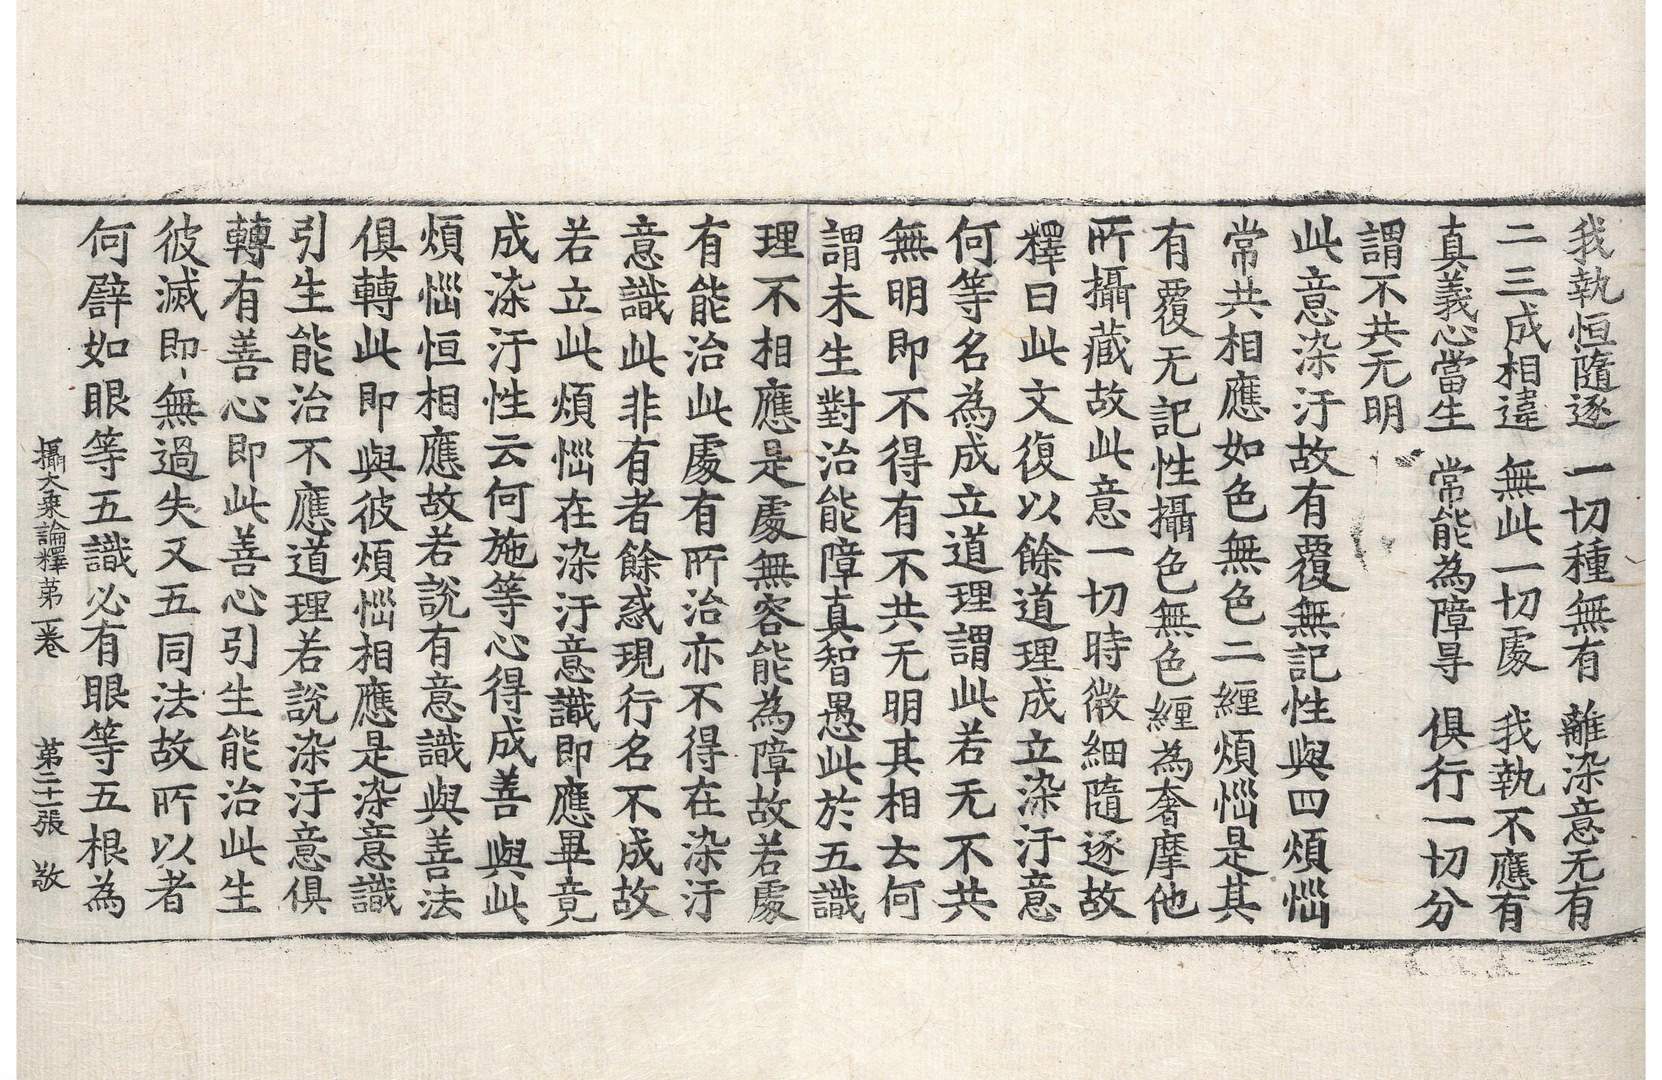 我執恒隨逐　一切種無有　離染意无有
二三成相違　無此一切處　我執不應有
真義心當生　常能為障㝵　俱行一切分
謂不共无明
此意染汙故有覆無記性與四煩惱
常共相應如色無色二纏煩惱是其
有覆无記性攝色無色纏為奢摩他
所攝藏故此意一切時微細隨逐故
釋曰此文復以餘道理成立染汙意
何等名為成立道理謂此若无不共
無明即不得有不共无明其相云何
謂未生對治能障真智愚此於五識
理不相應是處無容能為障故若處
有能治此處有所治亦不得在染汙
意識此非有者餘惑現行名不成故
若立此煩惱在染汙意識即應畢竟
成染汙性云何施等心得成善與此
煩惱恒相應故若說有意識與善法
俱轉此即與彼煩惱相應是染意識
引生能治不應道理若說染汙意俱
轉有善心即此善心引生能治此生
彼滅即無過失又五同法故所以者
何譬如眼等五識必有眼等五根為
攝大乘論釋第一卷　第二十一張　敬